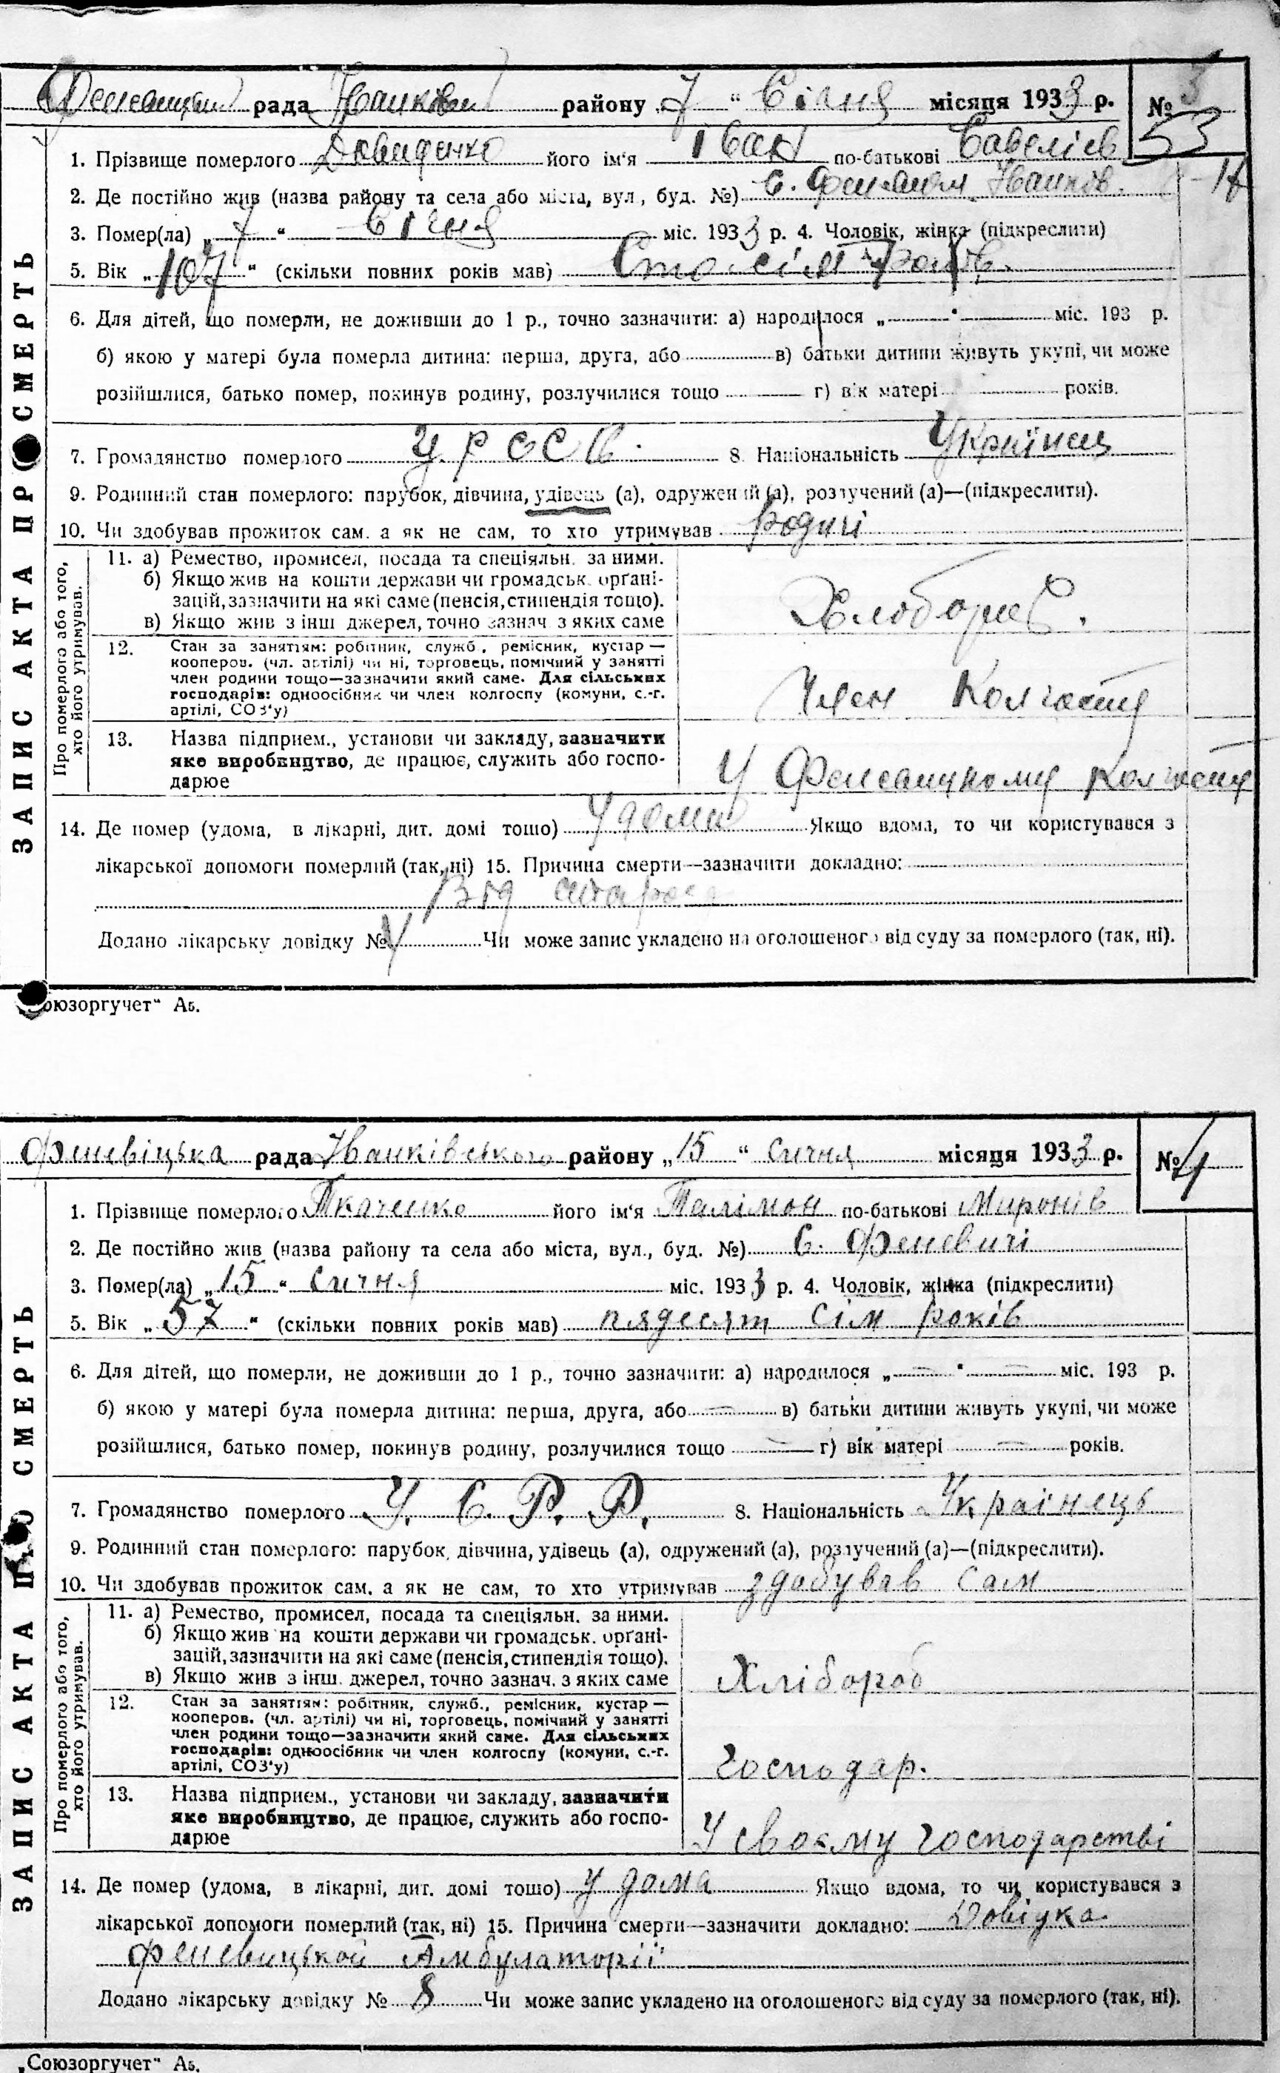 Феневицька рада Іванківськ району „7“ Січня місяця 1933 р. № 3
53
1. Прізвище померлого Давиденко його ім'я Іван по-батькові Савеліев
2. Де постійно жив (назва району та села або міста, вул., буд. №) с. Феневичі Іванков.
3. Помер(ла) „7“ Січня міс. 1933 р. 4. Чоловік, жінка (підкреслити)
5. Вік „107“ (скільки повних років мав) Сто сім років.
6. Для дітей, що померли, не доживши до 1 р., точно зазначити: а) народилося „ “ міс. 193 р.
б) якою у матері була померла дитина: перша, друга, або в) батьки дитини живуть укупі, чи може
розійшлися, батько помер, покинув родину, розлучилися тощо г) вік матері років.
7. Громадянство померлого УРСС 8. Національність Українец
9. Родинний стан померлого: парубок, дівчина, удівець (а), одружений (а), розлучений (а)—(підкреслити).
10. Чи здобував прожиток сам, а як не сам, то хто утримував Родичі
ЗАПИС АКТА ПРО СМЕРТЬ
Про померлого або того, хто його утримував.
11. а) Ремество, промисел, посада та спеціяльн. за ними.
б) Якщо жив на кошти держави чи громадськ. орґані-
зацій, зазначити на які саме (пенсія, стипендія тощо).
в) Якщо жив з інш джерел, точно зазнач з яких саме
Хлобороб.
12. Стан за занятіям: робітник, служб., ремісник, кустар —
кооперов. (чл. артілі) чи ні, торговець, помічний у занятті
член родини тощо—зазначити який саме. Для сільських
господарів: одноосібник чи член колгоспу (комуни, с.-г.
артілі, СОЗ'у)
Член Колгоспу
13. Назва підприєм., установи чи закладу, зазначити
яке виробництво, де працює, служить або госпо-
дарює
У Феневицкому Колгоспу
14. Де помер (удома, в лікарні, дит. домі тощо) Удома Якщо вдома, то чи користувався з
лікарської допомоги померлий (так, ні) 15. Причина смерти—зазначити докладно:
Від старос
Додано лікарську довідку № Чи може запис укладено на оголошеного від суду за померлого (так, ні).
„Союзоргучет“ А5.
Феневіцька рада Іванківського району „15“ сичня місяця 1933 р. № 4
1. Прізвище померлого Ткаченко його ім'я Палімон по-батькові Миронів
2. Де постійно жив (назва району та села або міста, вул., буд. №) С. Феневичі
3. Помер(ла) „15“ сичня міс. 1933 р. 4. Чоловік, жінка (підкреслити)
5. Вік „57“ (скільки повних років мав) пядесят сім років
6. Для дітей, що померли, не доживши до 1 р., точно зазначити: а) народилося „—“ — міс. 193 р.
б) якою у матері була померла дитина: перша, друга, або — в) батьки дитини живуть укупі, чи може
розійшлися, батько помер, покинув родину, розлучилися тощо — г) вік матері — років.
7. Громадянство померлого У. С. Р. Р. 8. Національність Українець
9. Родинний стан померлого: парубок, дівчина, удівець (а), одружений (а), розлучений (а)—(підкреслити).
10. Чи здобував прожиток сам, а як не сам, то хто утримував здобував сам
ЗАПИС АКТА ПРО СМЕРТЬ
Про померлого або того, хто його утримував.
11. а) Ремество, промисел, посада та спеціяльн. за ними.
б) Якщо жив на кошти держави чи громадськ. орґані-
зацій, зазначити на які саме (пенсія, стипендія тощо).
в) Якщо жив з інш. джерел, точно зазнач. з яких саме
Хлібороб
12. Стан за занятіям: робітник, служб., ремісник, кустар —
кооперов. (чл. артілі) чи ні, торговець, помічний у занятті
член родини тощо—зазначити який саме. Для сільських
господарів: одноосібник чи член колгоспу (комуни, с.-г.
артілі, СОЗ'у)
господар.
13. Назва підприєм., установи чи закладу, зазначити
яке виробництво, де працює, служить або госпо-
дарює
У своєму господарстві
14. Де помер (удома, в лікарні, дит. домі тощо) у дома Якщо вдома, то чи користувався з
лікарської допомоги померлий (так, ні) 15. Причина смерти—зазначити докладно: Довідка
феневицької Амбулаторії
Додано лікарську довідку № 8 Чи може запис укладено на оголошеного від суду за померлого (так, ні).
„Союзоргучет“ А5.